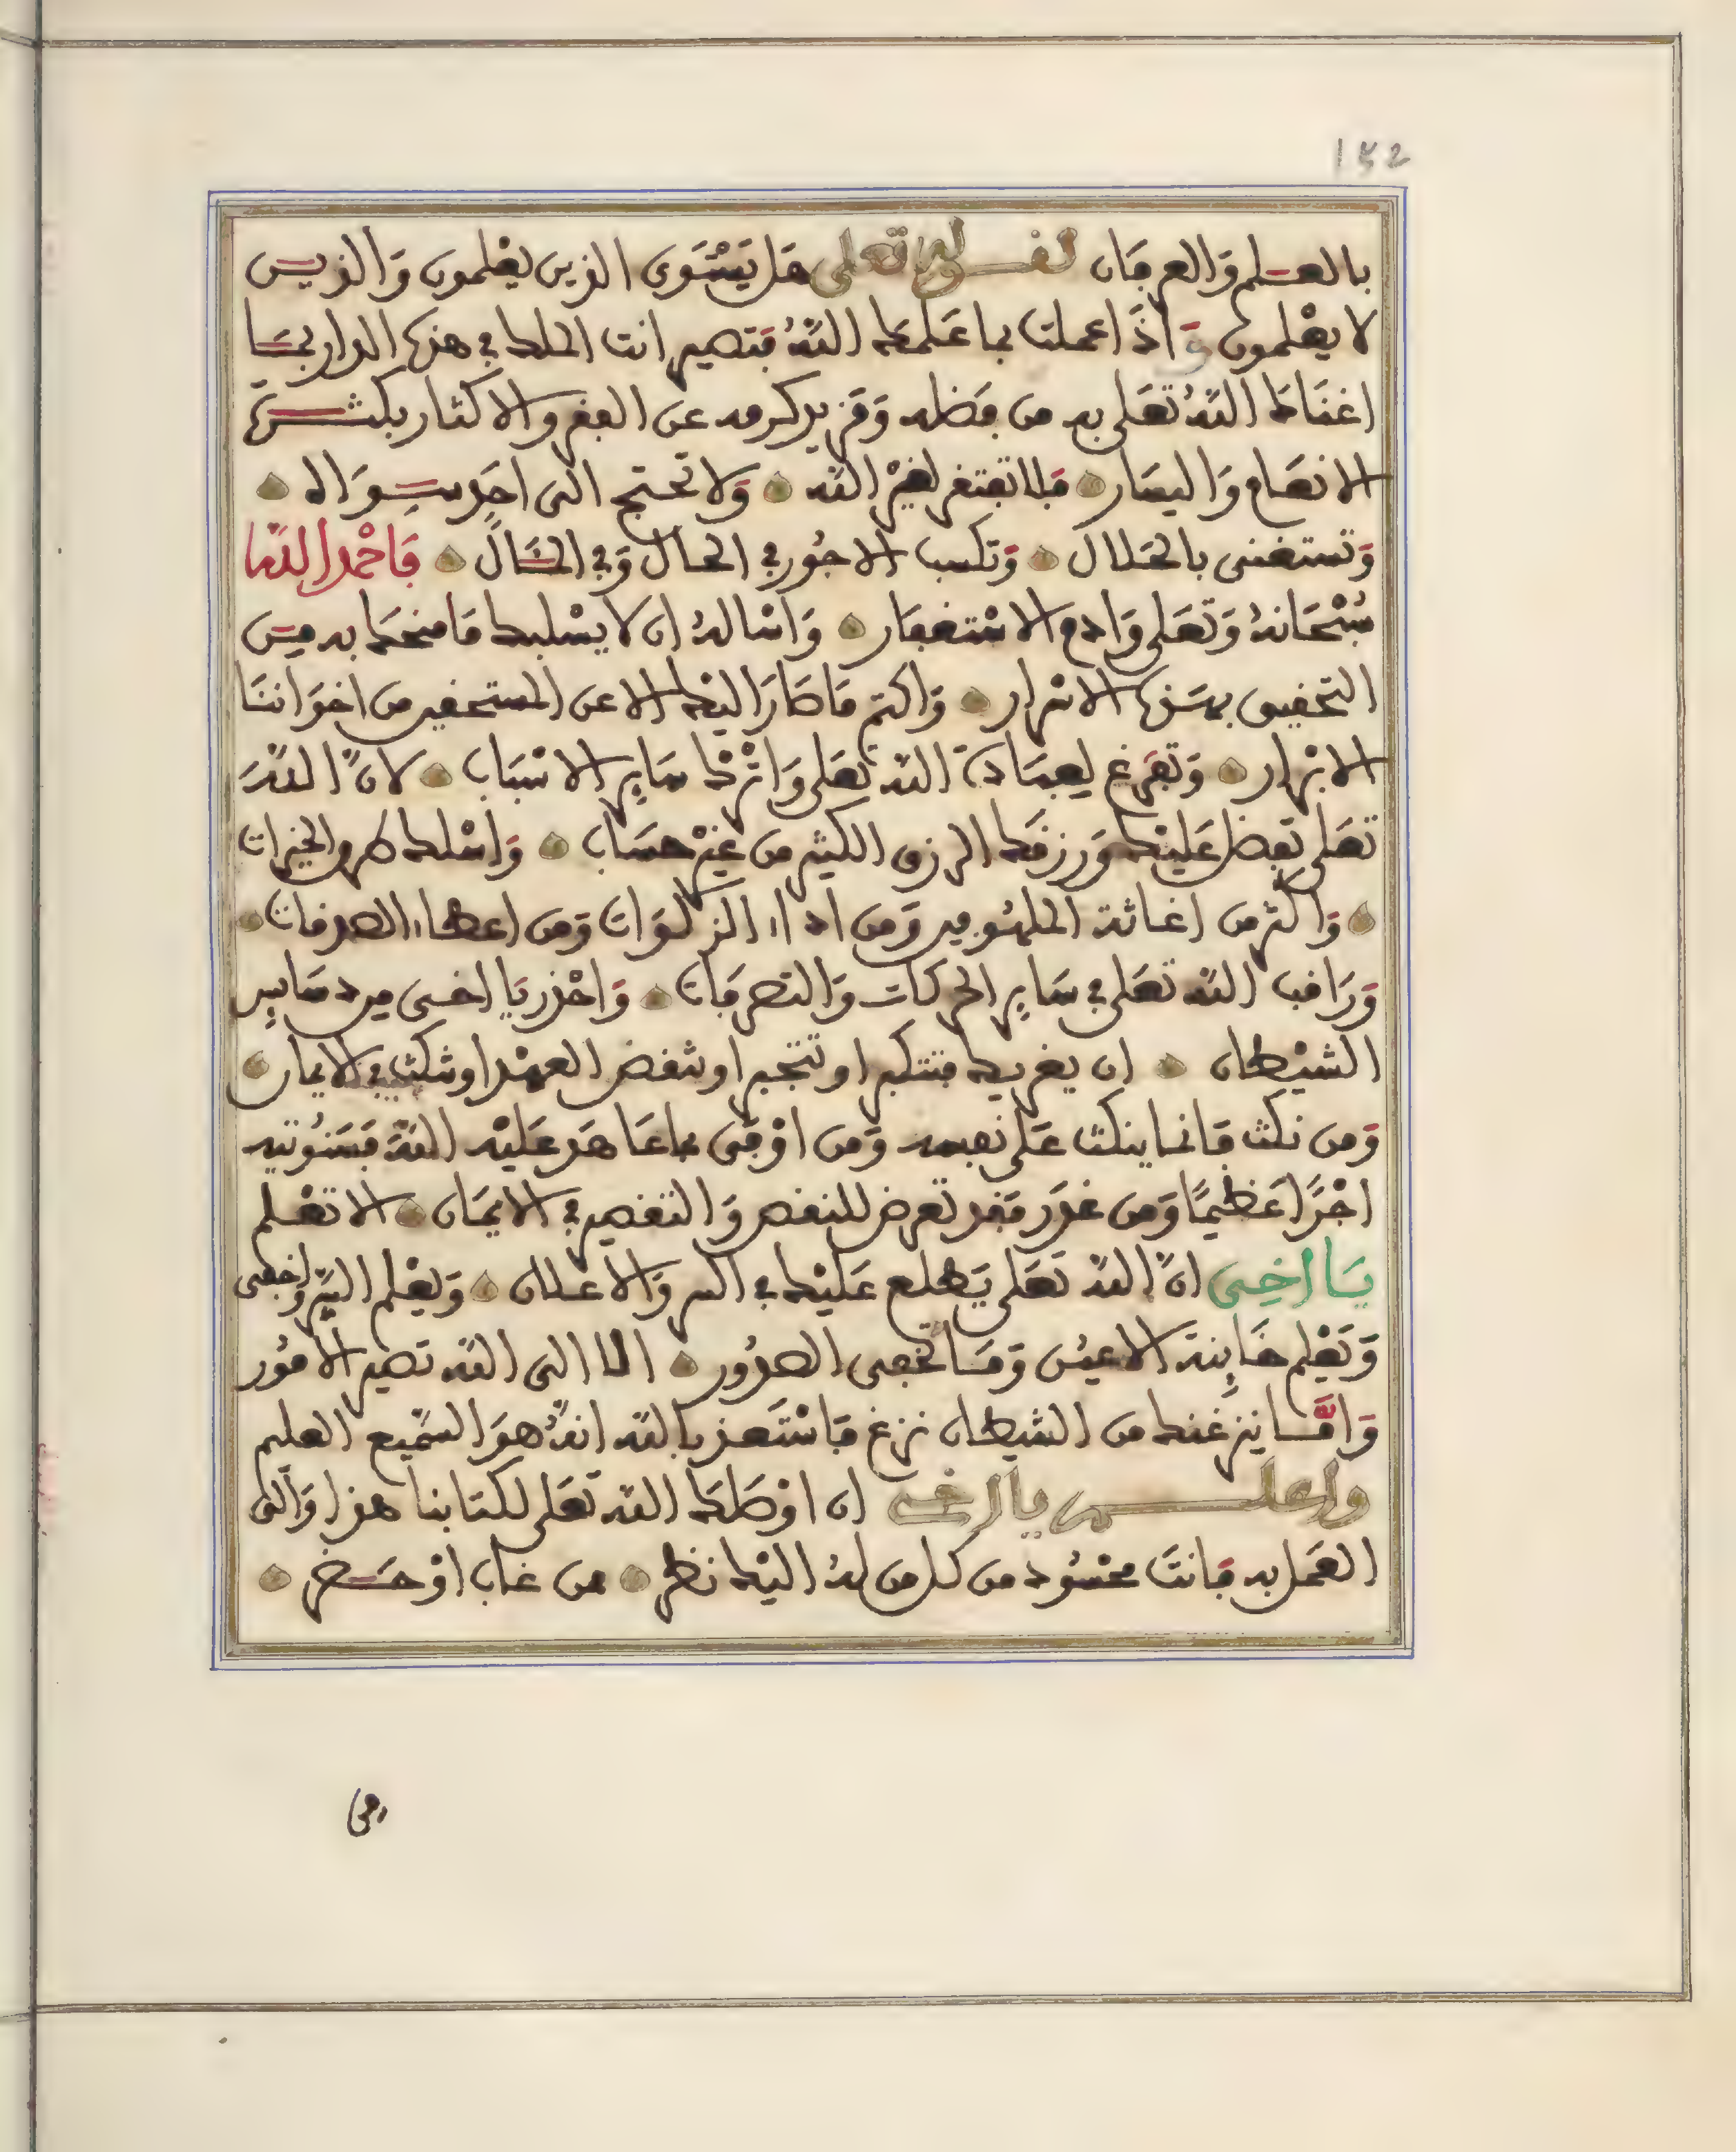 152
بالعلم والعرفان لقوله تعلى هل يستوى الذين يعلمون والذين
لا يعلمون وإذا عملت بما علمك الله فتصير انت الملك في هذه الدار بما
اغناك الله تعلى به من فضله ومزيد كرمه عن الفقر والاكثار بكثرة
الانعام واليسار فلا تفتقر لغير الله ولا تحتج الى احد سواه
وتستغنى بالحلال وتكسب الاجور في الحال وفي المئال فاحمد الله
سبحانه وتعلى وادم الاستغفار واساله ان لا يسلبك ما منحك به من
التحقيق بهذه الاسرار واكتم ما صار اليك الا عن المستحقين من اخواننا
الابرار وتفرغ لعبادة الله تعلى واترك ساير الاسباب لان الله
تعلى تفضل عليك ورزقك الرزق الكثير من غير حساب واسلك طرق الخيرات
واكثر من اغاثة الملهوفين ومن اداء الزكوات ومن اعطاء الصدقات
وراقب الله تعلى في ساير الحركات والتصرفات واحذر يا اخى من دسايس
الشيطان ان يغريك فتتكبر او تتجبر او تنقض العهد او تنكث في الايمان
ومن نكث فانما ينكث على نفسه ومن اوفى بما عاهد عليه الله فسنوتيه
اجرا عظيما ومن غدر فقد تعرض للنقص والتقصير في الايمان الا تعلم
يا اخى ان الله تعلى يطلع عليك في السر والاعلان ويعلم السر واخفى
ويعلم خاينة الاعين وما تخفى الصدور الا الى الله تصير الامور
واما ينزغنك من الشيطان نزغ فاستعذ بالله انه هو السميع العليم
واعلم يا اخى ان اوصلك الله تعلى لكتابنا هذا والى
العمل به فانت محسود من كل من له اليك نظر من غاب او حضر